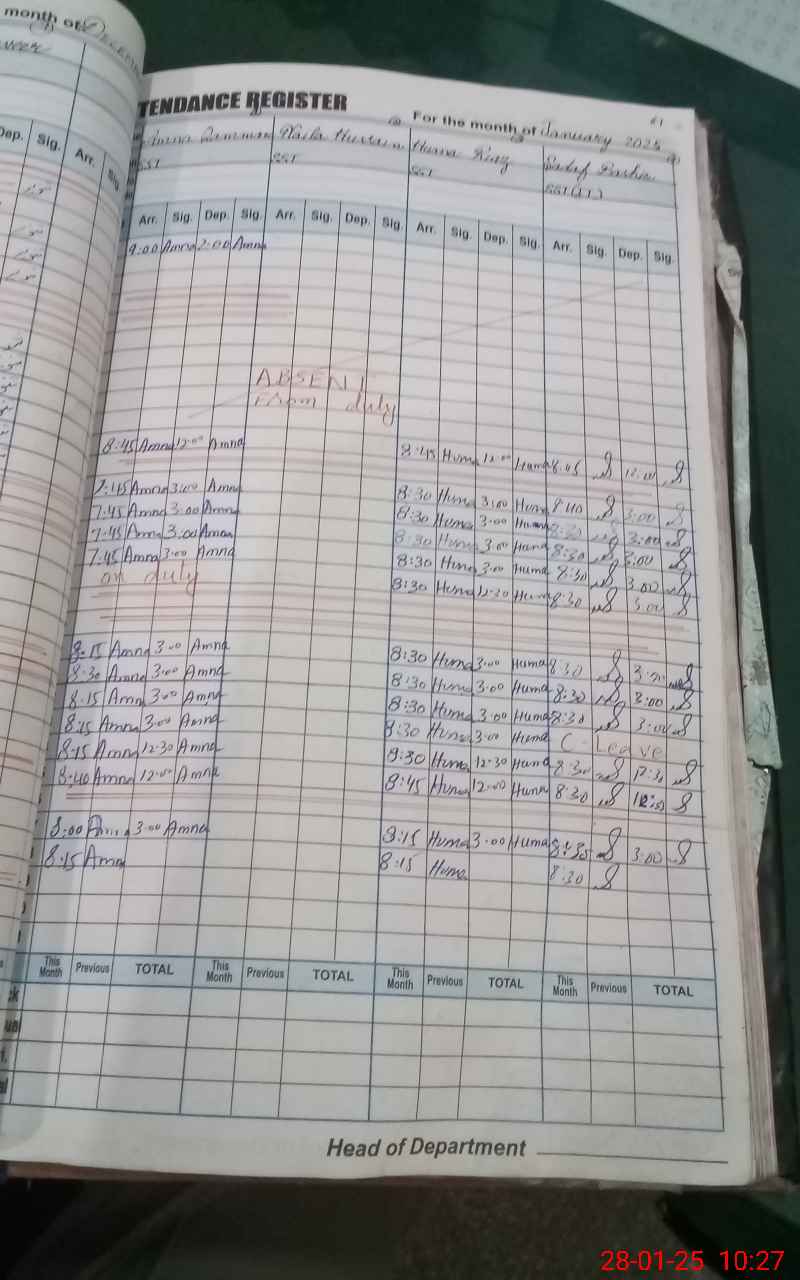 month of December
TENDANCE REGISTER For the month of January 2025 61
Amna Huma
SST SST SST SST (I.T)
Dep. Sig. Arr. Arr. Sig. Dep. Sig. Arr. Sig. Dep. Sig. Arr. Sig. Dep. Sig. Arr. Sig. Dep. Sig.
9:00 Amna 2:00 Amna
ABSENT
From duty
8:45 Amna 12:00 Amna 8:45 Huma 12:00 Huma 8:05
7:45 Amna 3:00 Amna 8:30 Huma 3:00 Huma 8:40 3:00
7:45 Amna 3:00 Amna 8:30 Huma 3:00 Huma 8:30 3:00
7:45 Amna 3:00 Amna 8:30 Huma 3:00 Huma 8:30 3:00
7:45 Amna 3:00 Amna 8:30 Huma 3:00 Huma 8:30 3:00
on duty 8:30 Huma 12:30 Huma 8:30 3:00
8:15 Amna 3:00 Amna 8:30 Huma 3:00 Huma 8:30
8:30 Amna 3:00 Amna 8:30 Huma 3:00 Huma 8:30 3:00
8:15 Amna 3:00 Amna 8:30 Huma 3:00 Huma 8:30 3:00
8:15 Amna 3:00 Amna 8:30 Huma 3:00 Huma C-Leave
8:15 Amna 12:30 Amna 8:30 Huma 12:30 Huma 8:30 12:30
8:40 Amna 12:00 Amna 8:45 Huma 12:00 Huma 8:30
8:00 Amna 3:00 Amna 8:15 Huma 3:00 Huma 8:35 3:00
8:15 Amna 8:15 Huma 8:30
This Month Previous TOTAL This Month Previous TOTAL This Month Previous TOTAL This Month Previous TOTAL
Head of Department
28-01-25 10:27